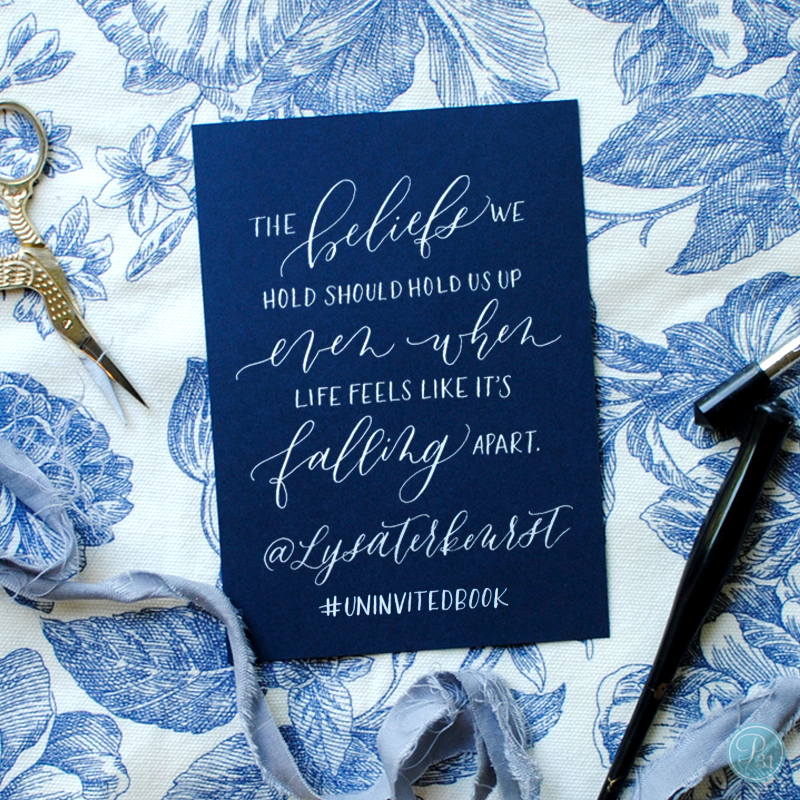 THE beliefs WE
HOLD SHOULD HOLD US UP
even when
LIFE FEELS LIKE IT'S
falling APART.
@Lysaterkeurst
#UNINVITEDBOOK